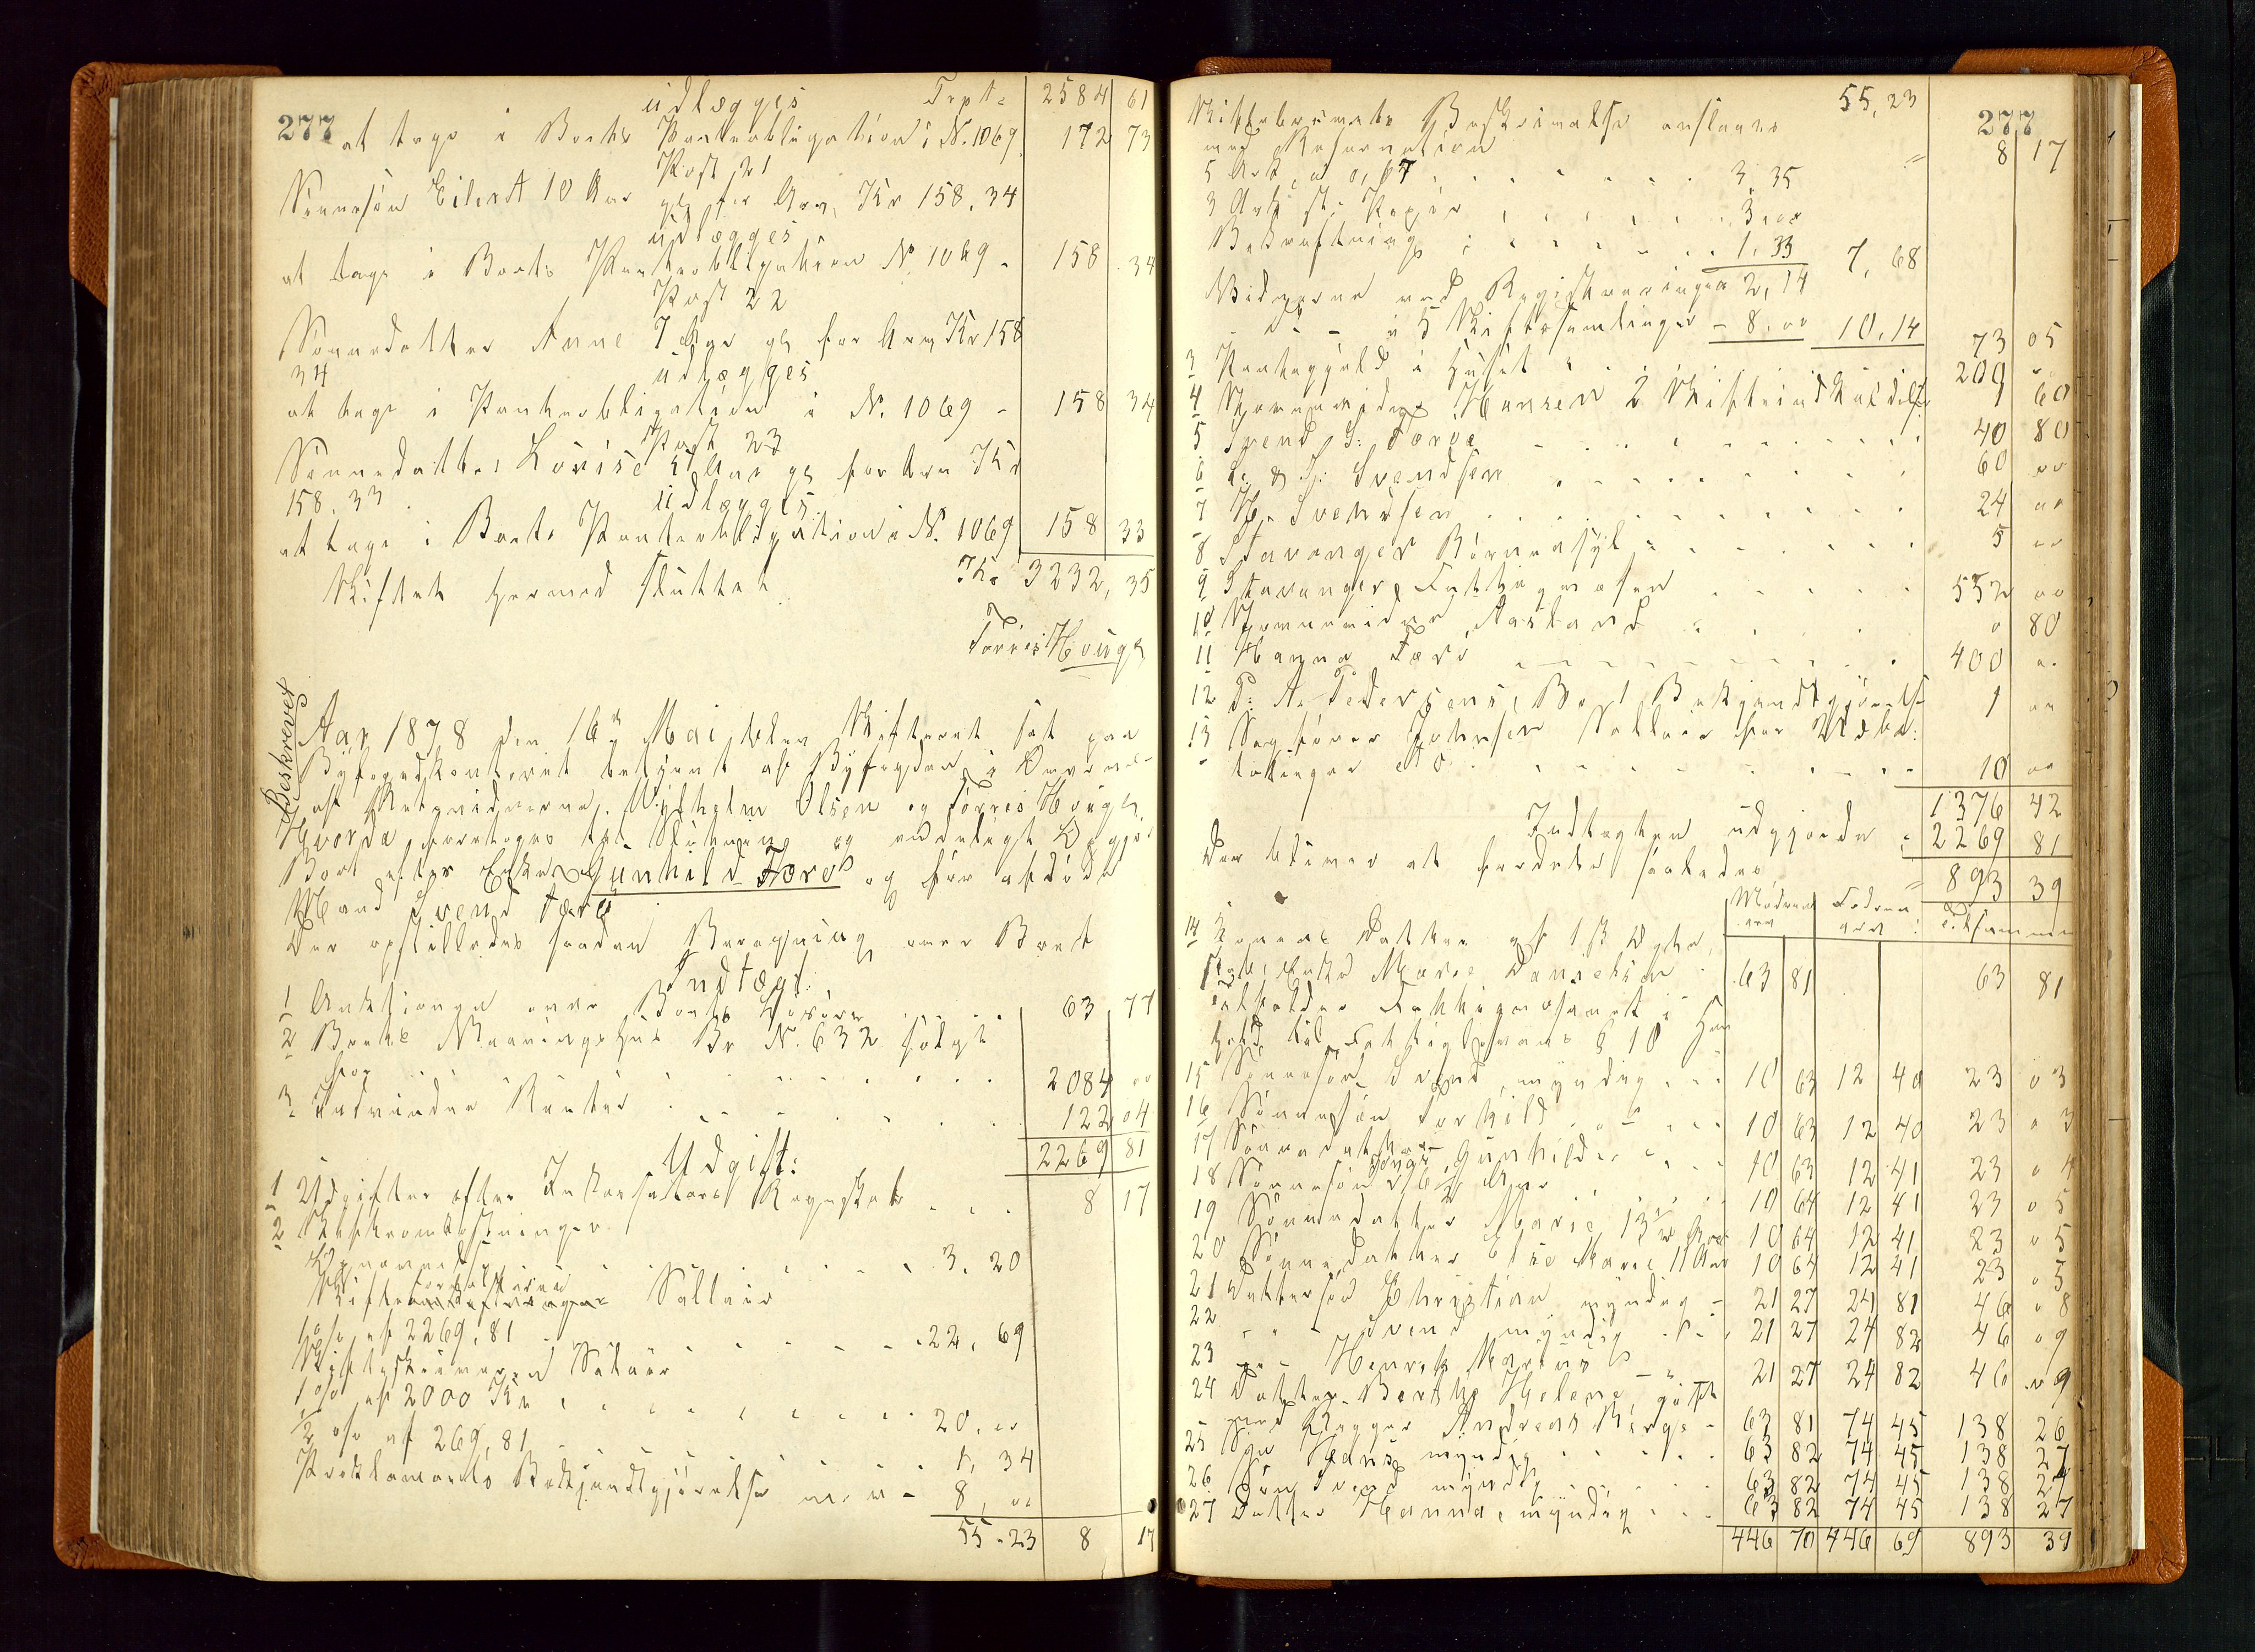 277
udlægges Trpt = 2584 61
at tage i Boets Panteobligation i N. 1069 172 73
Post 21
Sønnesøn Eilert 10 Aar gl for Arv, Kr 158.34
udlægges
at tage i Boets Panteobligation N. 1069 - 158 34
Post 22
Sønnedatter Anne 7 Aar gl for Arv Kr 158
34
udlægges
at tage i Panteobligation i N. 1069 - 158 34
Post 23
Sønnedatter Lovise 5 Aar gl for Arv Kr
158.33
udlægges
at tage i Boets Panteobligation i N. 1069 158 33
Skiftet hermed sluttet Kr 3232, 35
Torris Houge
Beskrevet
Aar 1878 den 16de Mai blev Skifteret sat paa
Byfogedkontoret betjent af Byfogden i Overvær
af Retsvidnerne Vilhelm Olsen og Torris Houge
Hvorda foretoges til Slutning og endeligt Opgjør
Boet efter Enken Gunhild Færø og før afdøde
Mand Svend Færø
Der opstilledes saadan Beregning over Boet
Indtægt:
1 Auktionen over Boets Løsøre 63 77
2 Boets Vaaningshus Br N. 632 solgt
for 2084 00
3 Indvundne Renter 122 04
2269 81
Udgift:
1 Udgifter efter Inkassators Regnskab 8 17
2 Skifteomkostninger
3. 20
Skifteforvalteren Sallair
1 o/o af 2269,81 22, 69
Skifteskriveren Salair
1 o/o af 2000 Kr 20, 00
1/2 o/o af 269,81 1, 34
Proklamaets Bekjendtgjørelse m. v - 8, 00
55.23 8 17
277
Skiftebrevets Beskrivelse anslaaes 55, 23
med Reservation = 8 17
5 Ark a 0,67 3. 35
3 Ark st: Papir 3,00
Bekræftning 1. 33 7, 68
Vidnerne ved Registreringen 2, 14
- do - i 5 Skiftesamlinger - 8.00 10.14 73 05
3 Pantegjæld i Huset 200 -
4 Hansen 2 1 60
5 Svend S: Færøe 40 80
6 L. & S: Svendsen 60 00
7 H. Svendsen 24 00
8 Stavanger Børneasyl 5 00
9 Stavanger Fattigvæsen 552 00
10 Aasland 0 80
11 Hanna Færø 400 00
12 P: A. Pedersens Bo Bekjendtgjørelse 1 00
13 Sagfører Johnsen Sallair for Udbe-
talinger 10 00
1376 42
Indtægten udgjorde 2269 81
Der bliver at fordele saaledes = 893 39
Mødrene arv Fædrene arv tilsammen
14 Konens Datter af 1st Ægte
skab, Enke Maren Danielsen 63 81 63 81
tilfalder Fattigvæsenet i Hen
hold til Fattiglovens § 10
15 Sønnesøn Svend, myndig 10 63 12 40 23 03
16 Sønnesøn Torkild - " - 10 63 12 40 23 03
17 Sønnedatter Gunhild - " - 10 63 12 41 23 04
18 Sønnesøn Jonas 16 1/2 Aar 10 64 12 41 23 05
19 Sønnedatter Marie 13 1/2 Aar 10 64 12 41 23 05
20 Sønnedatter Elise Marie 11 Aar 10 64 12 41 23 05
21 Dattersøn Christian myndig - 21 27 24 81 46 08
22 - " - Svend myndig 21 27 24 82 46 09
23 - " - Henrik Martin - " - 21 27 24 82 46 09
24 Datter Berthe Helene gift
med Bygger Andreas Berge - 63 81 74 45 138 26
25 Søn Hans myndig 63 82 74 45 138 27
26 Søn Svend myndig 63 82 74 45 138 27
27 Datter Hanna, myndig 63 82 74 45 138 27
446 70 446 69 893 39